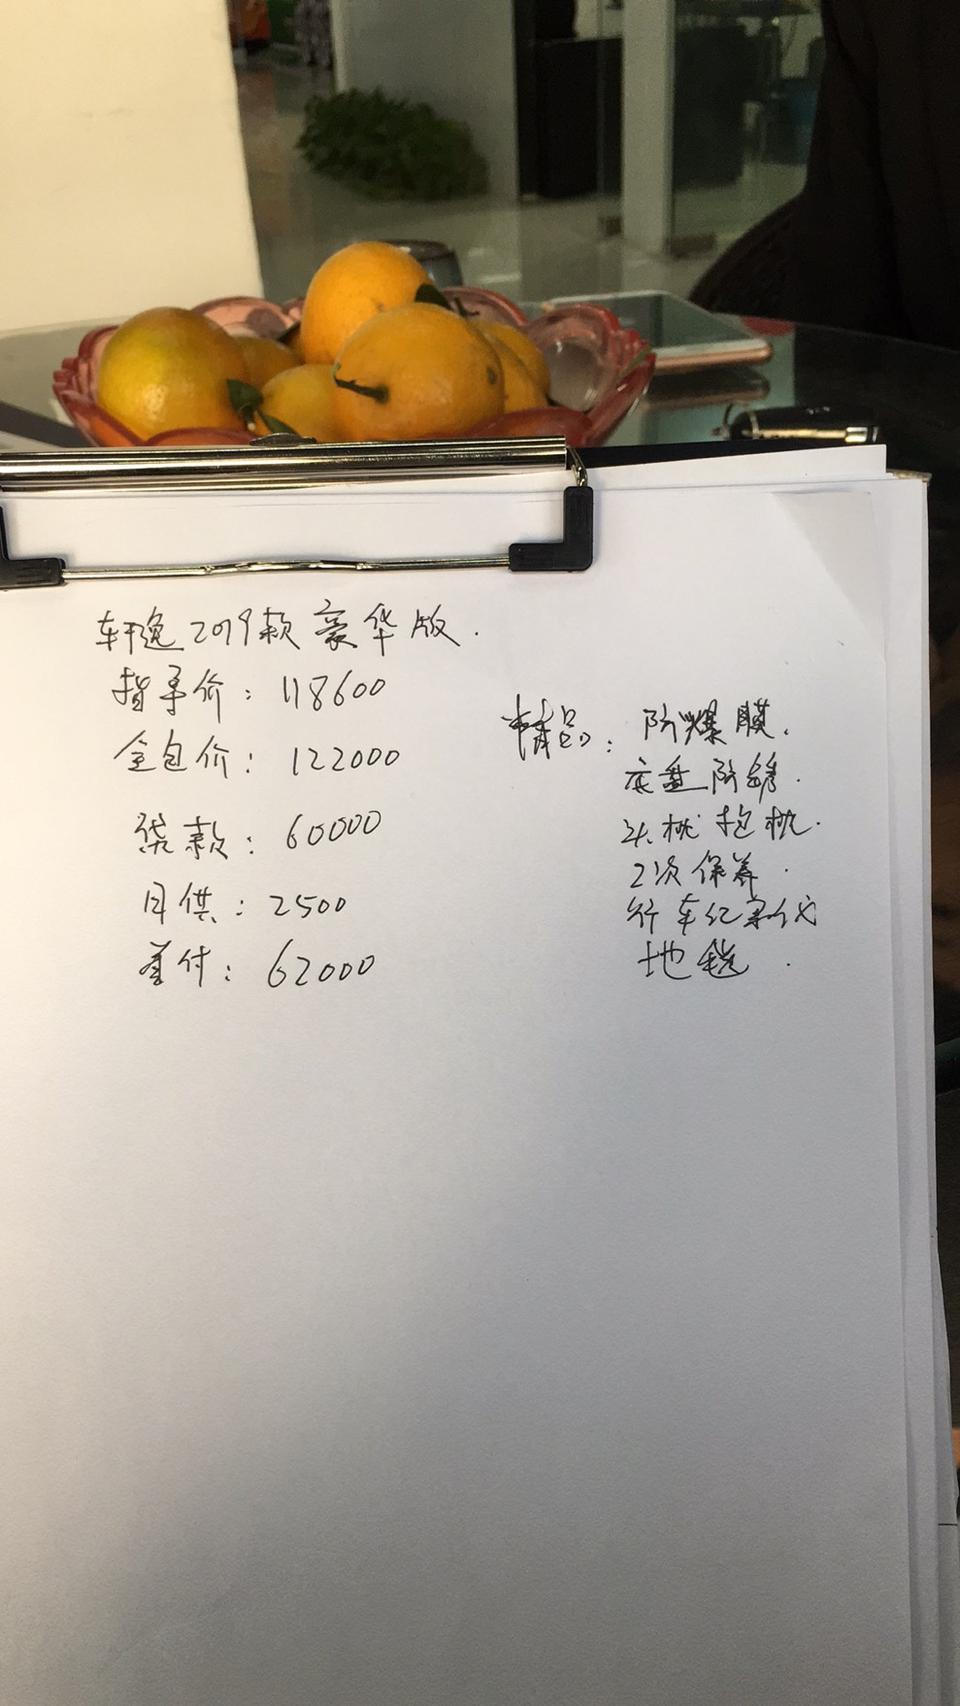 轩逸2019款豪华版.
指导价：118600
全包价：122000
贷款：60000
月供：2500
首付：62000
精品：防爆膜.
底盘防锈.
头枕抱枕.
2次保养.
行车记录仪
地毯.